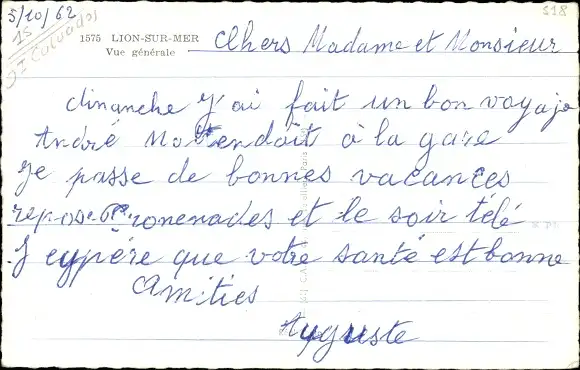 5/10/62
15
DI Calvados
518
1575 LION-SUR-MER
Vue générale
Chers Madame et Monsieur
dimanche J'ai fait un bon voyaje
André Mottendait à la gare
Je passe de bonnes vacances
repose Promenades et le soir télé
J eypére que votre santé est bonne
Amities
Auguste